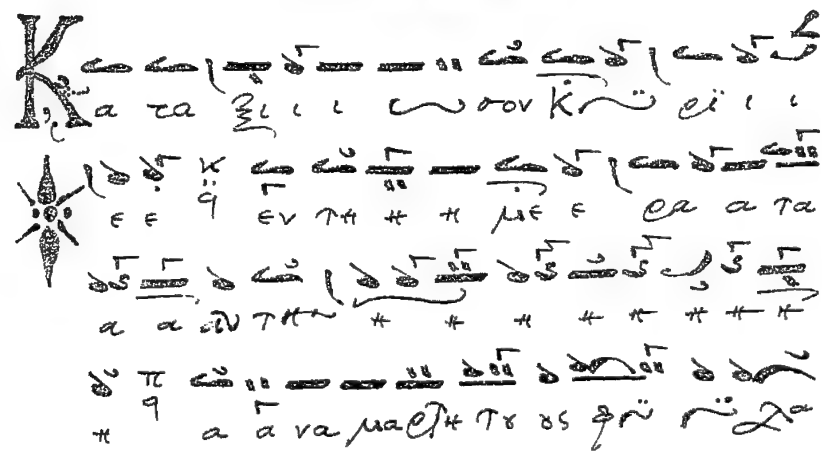 Κα τα ξι ι ι ω σον Κυ ρι ι ι
ε ε εν τη η η με ε ρα α τα
α α αυ τη η η η η η η η η
η α α να μα ρτη τȣ ȣς φυ υ λα